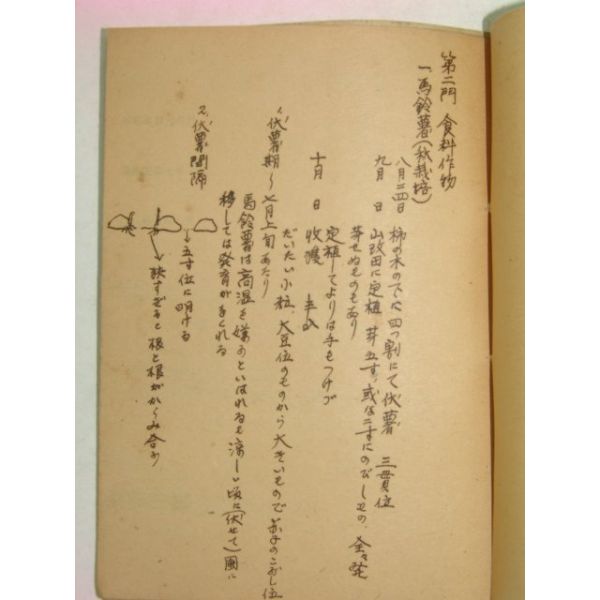 第二門 食料作物
一 馬鈴薯(秋栽培)
八月二四日 柿の木の下に四つ割にて伏薯 三貫位
九月 日 山改田に定植 芽五寸、或は二寸にのびしもの、全々発
芽せぬものもあり
定植してよりは手もつけず
十月 日 收獲
だいたい小粒、大豆位のものから大きいもので茶子のこぶし位
1、伏薯期〜七月上旬あたり
馬鈴薯は高温を嫌ふといはれるも涼しい頃に(伏せて)圃に
移しては発育がおくれる
2、伏薯間隔
→五寸位に明ける
→狭すぎると根と根がからみ合ふ